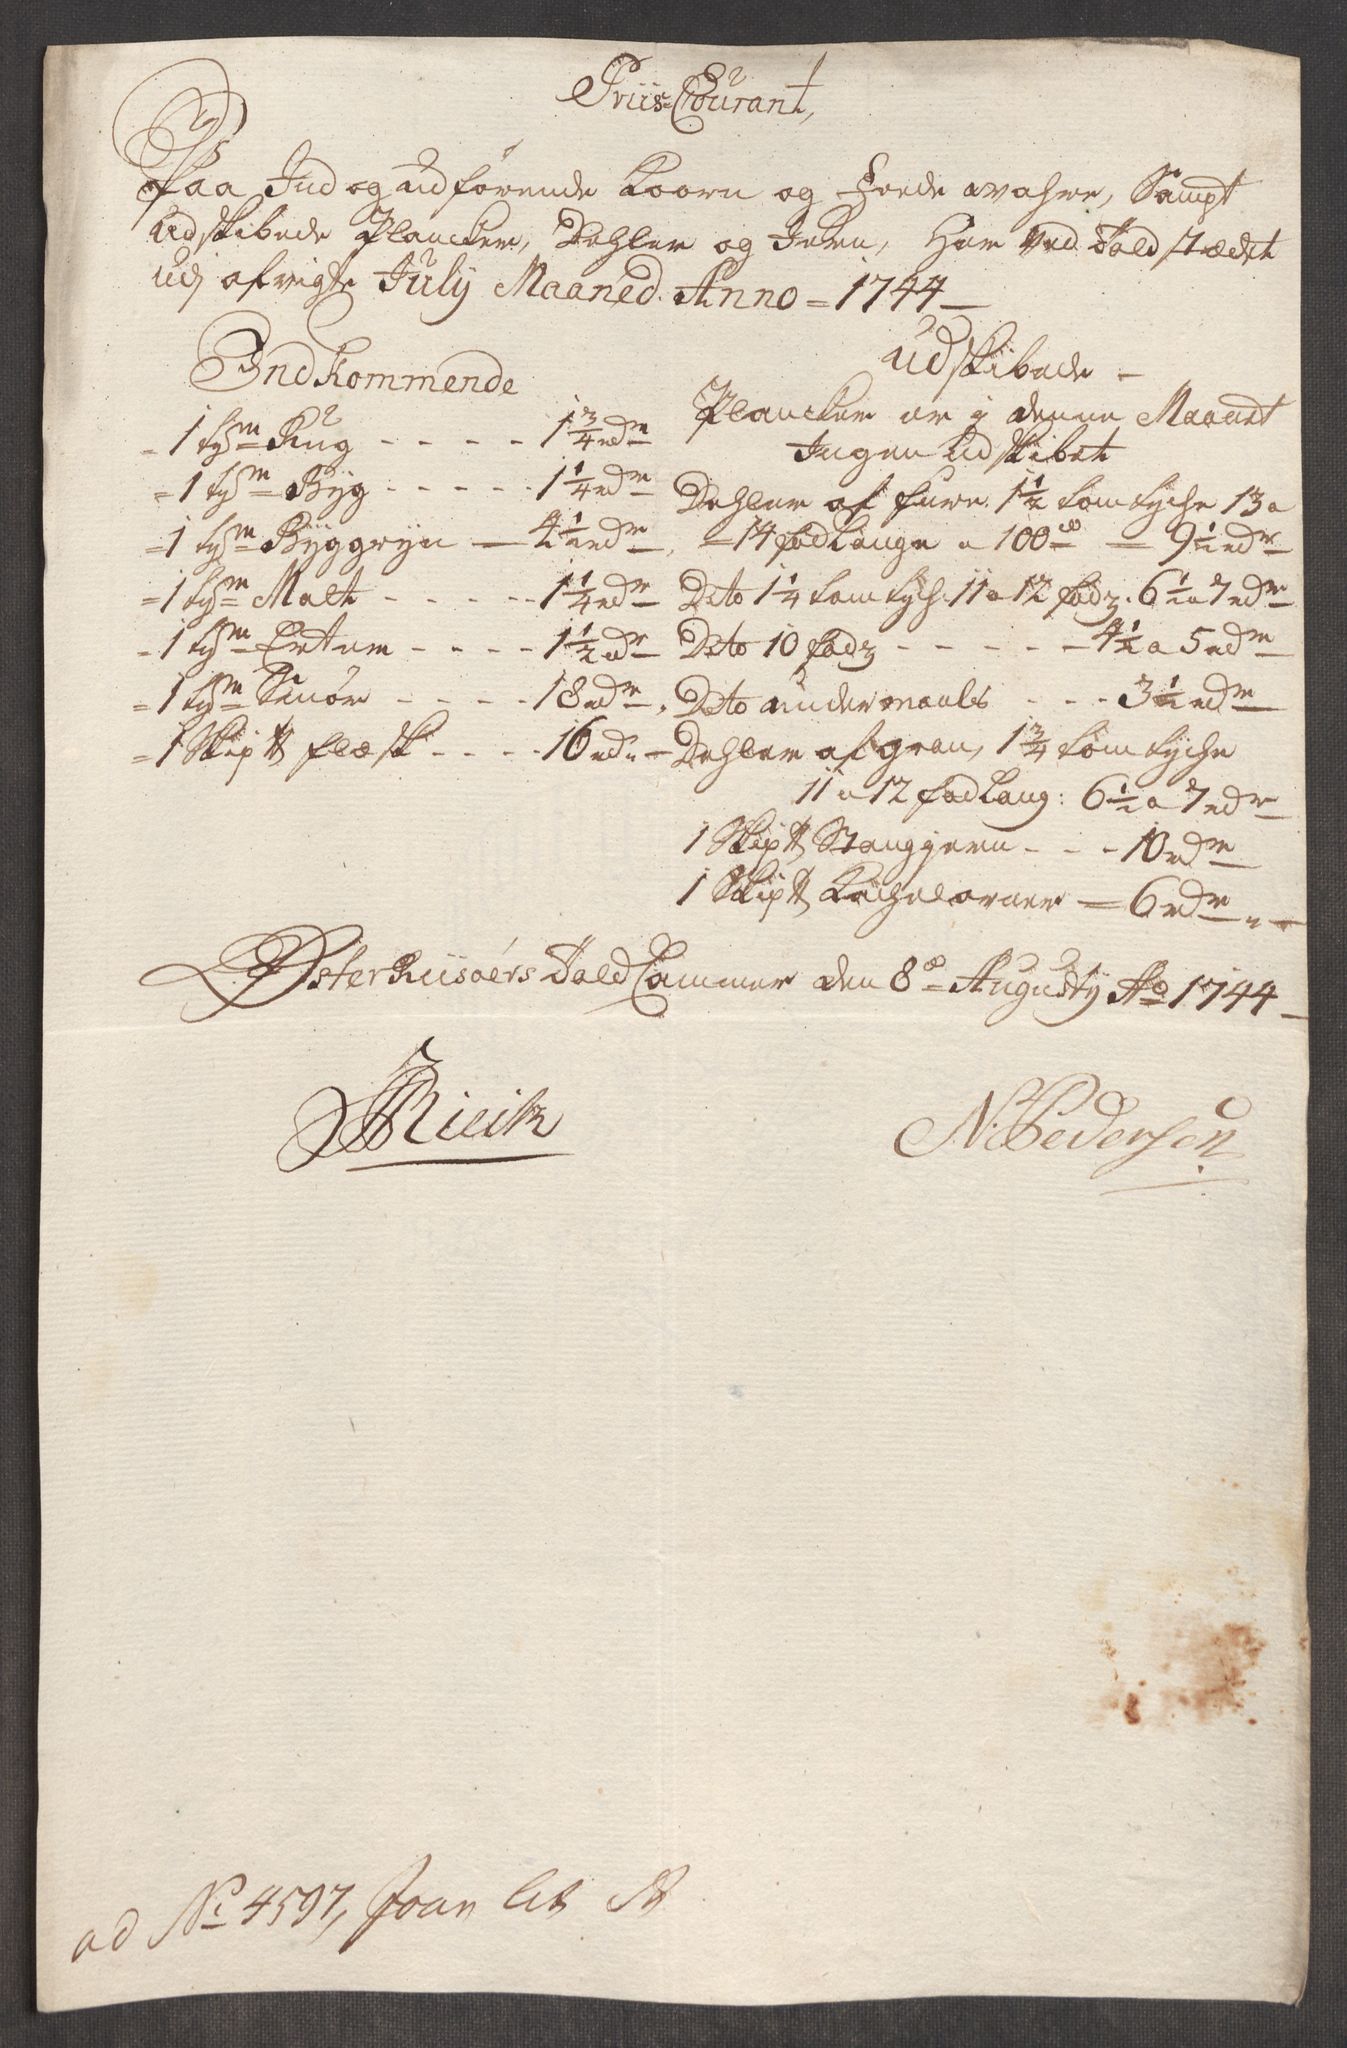 Priis Courant,
Paa Ind og udförende Koorn og Feede wahre, Sampt
Udskibede Plancker, Dehler og Jern, Her ved Toldstædet
udj afvigte July Maaned. Anno = 1744
Indkommende
= 1 tynde Rug - - - - - 1 3/4 rdr
= 1 tynde Byg - - - - - 1 1/4 rdr
= 1 tynde Byggryn — 4 1/2 rdr
= 1 tynde Malt - - - - - 1 1/4 rdr
= 1 tynde Erter - - - - 1 1/2 rdr
= 1 tynde Smör - - - - - 18 rdr
= 1 Skip ℔ flæsk - - - - 16 rd
Udskibede
Plancker er i denne Maanet
Ingen Udskibet
Dehler af fure 1 1/2 tom tyche 13 a
= 14 fod Lange a 100 — 9 1/2 rdr
Dito 1 1/4 tom tych: 11 a 12 fod: 6 1/2 a 7 rdr
Dito 10 fod - - - - - 4 1/2 a 5 rdr
Dito undermaals - - - 3 1/2 rdr
Dehler af gran, 1 3/4 tom tyche
11 a 12 fod Lang: 6 1/2 a 7 rdr
1 Skip ℔ Stangjern - - - 10 rdr
1 Skip ℔ Kachelovner = 6 rdr
Österriisoers Told Cammer den 8de Augusty Ao 1744
N: Pedersen
ad No 4597, Joan lit A